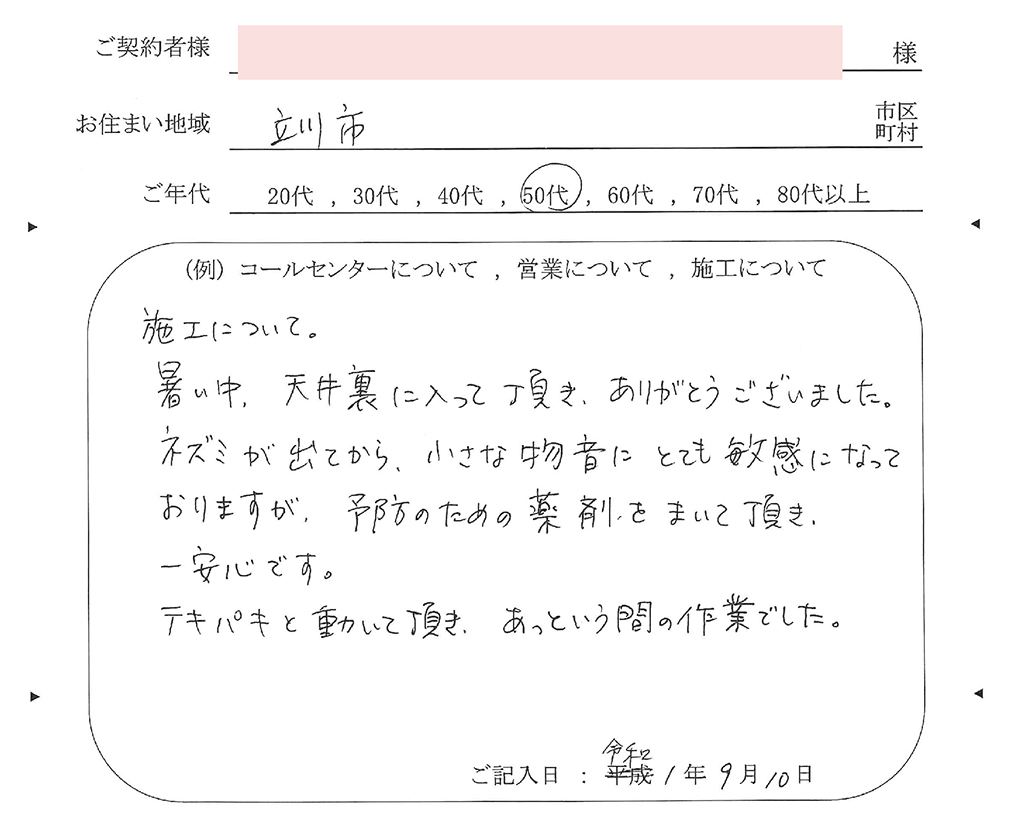 ご契約者様 様
お住まい地域 立川市 市区町村
ご年代 20代 , 30代 , 40代 , 50代 , 60代 , 70代 , 80代以上
(例) コールセンターについて , 営業について , 施工について
施工について。
暑い中、天井裏に入って頂き、ありがとうございました。
ネズミが出てから、小さな物音にとても敏感になって
おりますが、予防のための薬剤をまいて頂き、
一安心です。
テキパキと動いて頂き、あっという間の作業でした。
令和
ご記入日 : 平成 1年 9月 10日